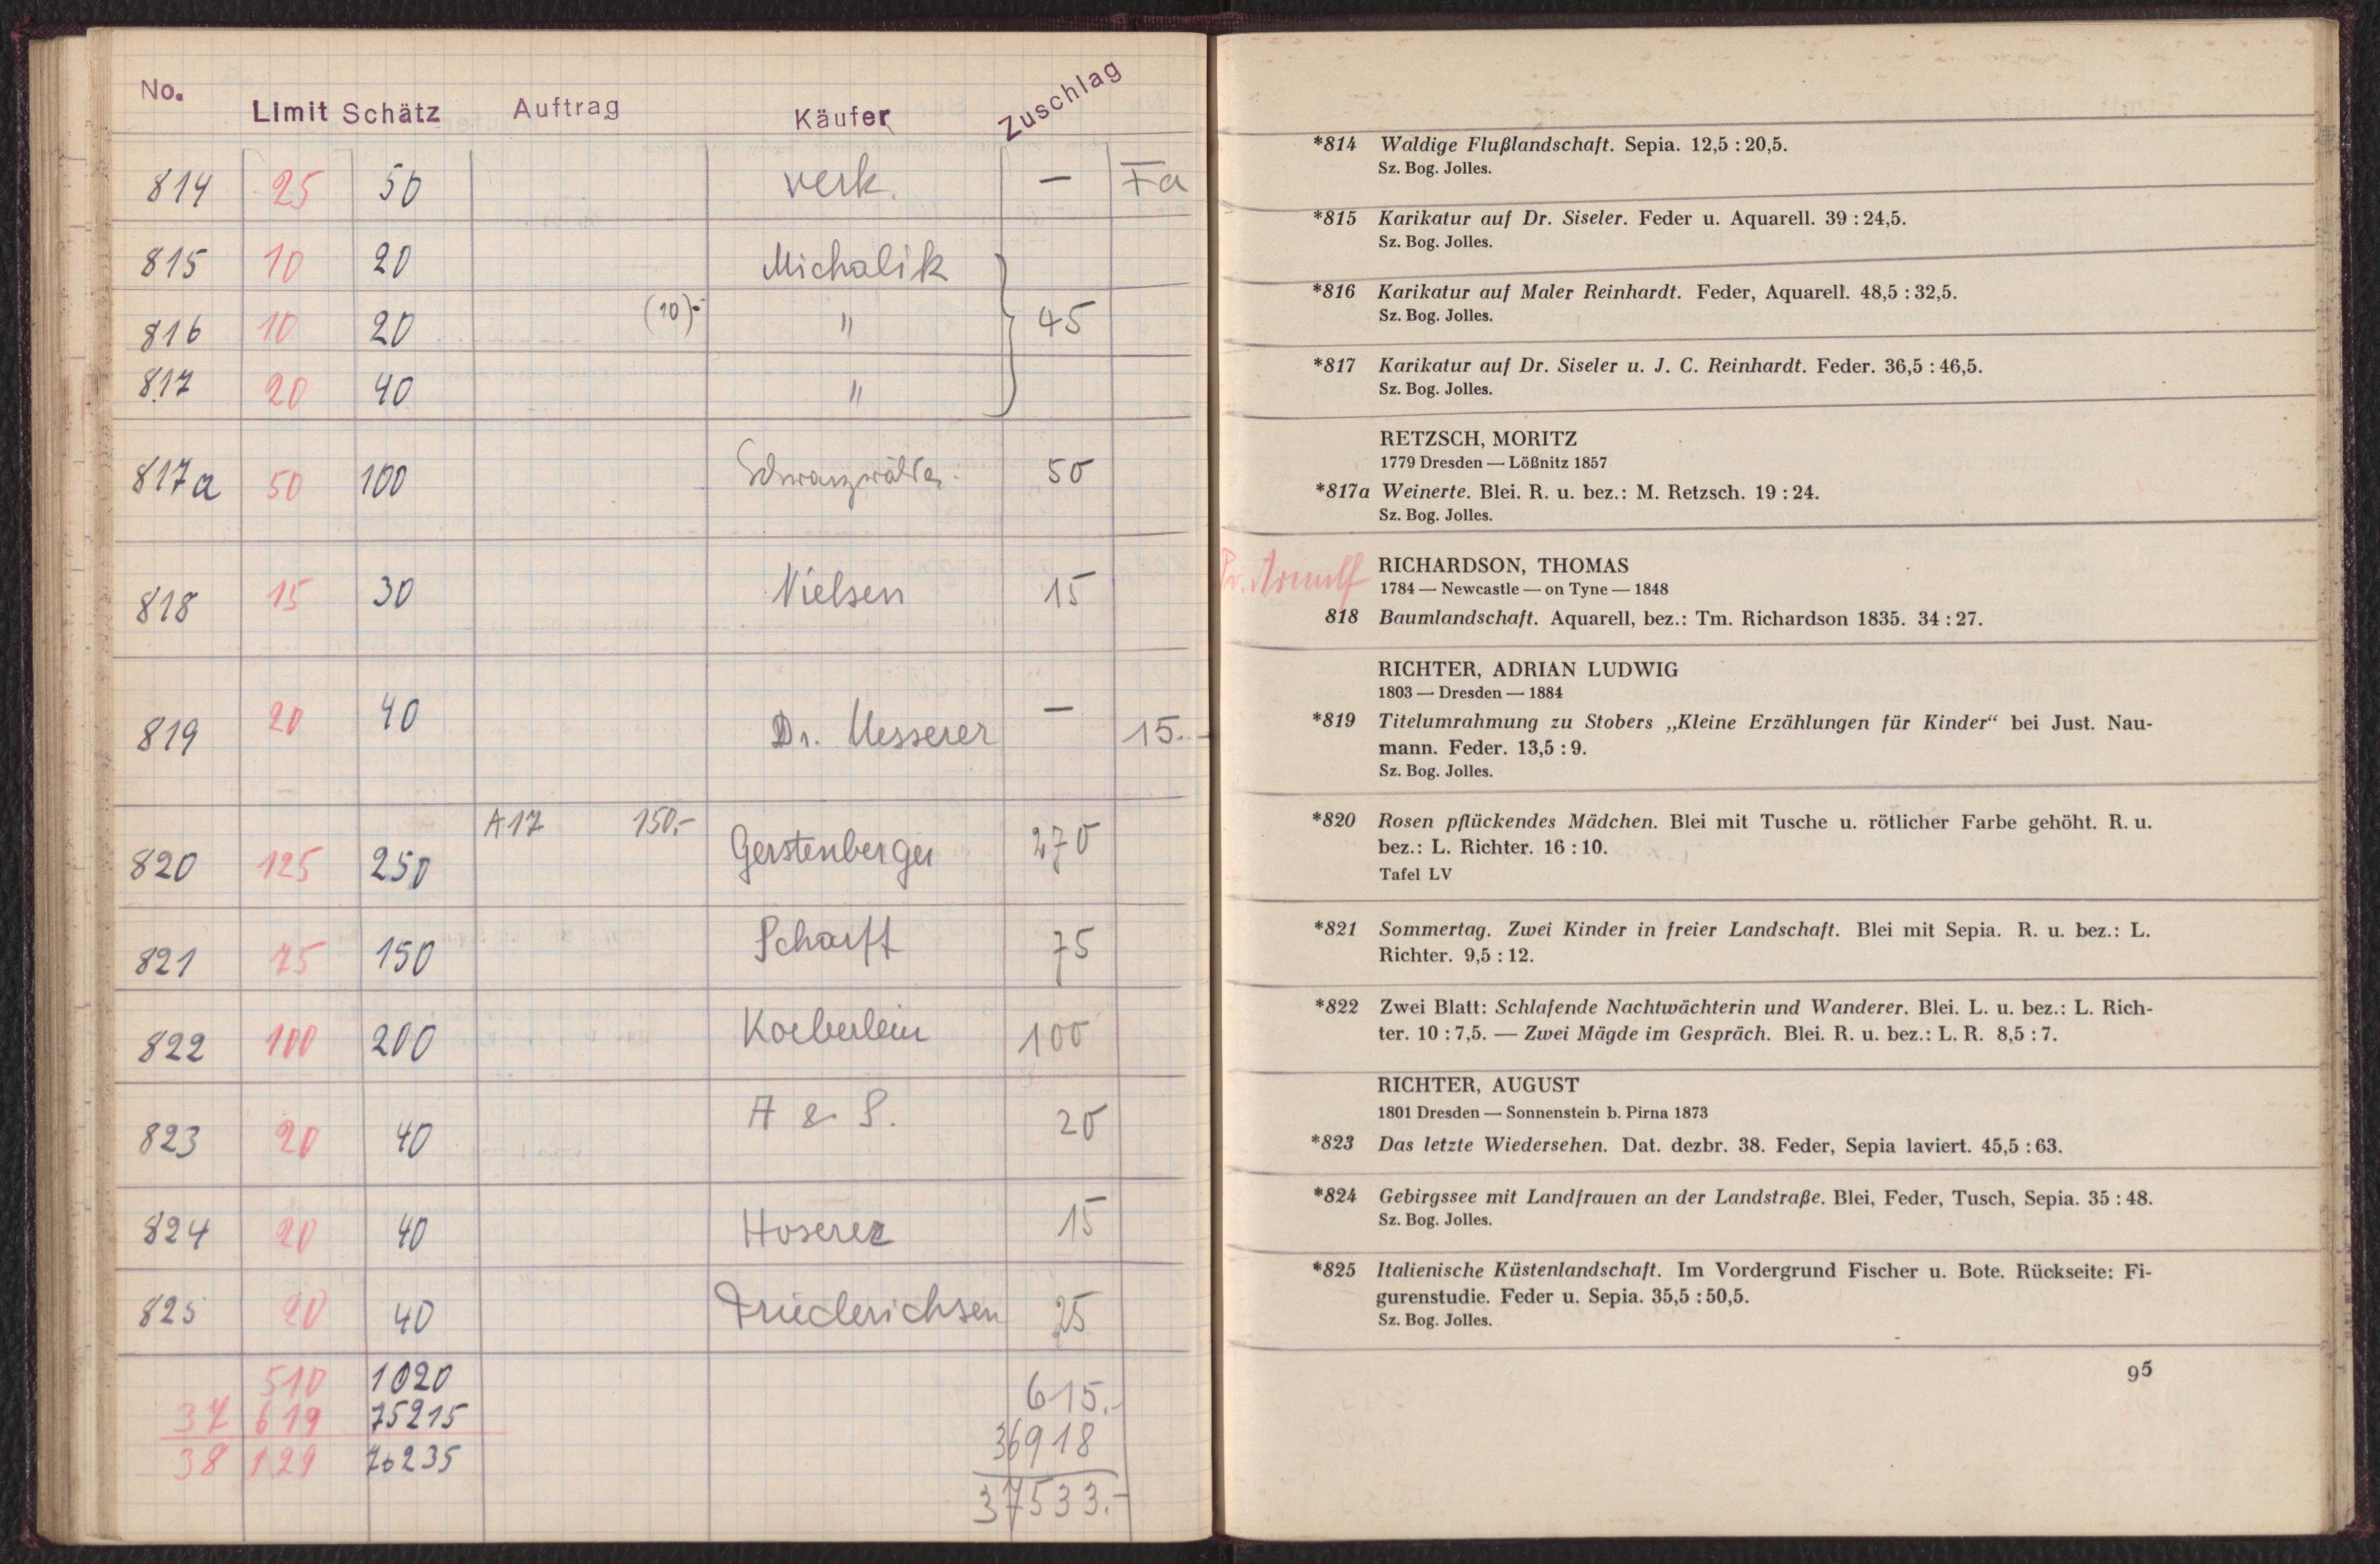 No. Limit Schätz Auftrag Käufer Zuschlag
814 25 50 verk. — Fa
815 10 20 Michalik
816 10 20 (10)- " 45
817 20 40 "
817a 50 100 50
818 15 30 Nielsen 15
819 20 40 Dr. Messerer — 15.-
A17 150.-
820 125 250 Gerstenberger 270
821 75 150 Scharff 75
822 100 200 Koeberlein 100
823 20 40 A & S. 20
824 20 40 Hoserer 15
825 20 40 Friederichsen 25
510 1020 615.-
37 619 75215 36918
38 129 76235
37533.-
*814 Waldige Flußlandschaft. Sepia. 12,5 : 20,5.
Sz. Bog. Jolles.
*815 Karikatur auf Dr. Siseler. Feder u. Aquarell. 39 : 24,5.
Sz. Bog. Jolles.
*816 Karikatur auf Maler Reinhardt. Feder, Aquarell. 48,5 : 32,5.
Sz. Bog. Jolles.
*817 Karikatur auf Dr. Siseler u. J. C. Reinhardt. Feder. 36,5 : 46,5.
Sz. Bog. Jolles.
RETZSCH, MORITZ
1779 Dresden — Lößnitz 1857
*817a Weinerte. Blei. R. u. bez.: M. Retzsch. 19 : 24.
Sz. Bog. Jolles.
Arnulf RICHARDSON, THOMAS
1784 — Newcastle — on Tyne — 1848
818 Baumlandschaft. Aquarell, bez.: Tm. Richardson 1835. 34 : 27.
RICHTER, ADRIAN LUDWIG
1803 — Dresden — 1884
*819 Titelumrahmung zu Stobers „Kleine Erzählungen für Kinder“ bei Just. Nau-
mann. Feder. 13,5 : 9.
Sz. Bog. Jolles.
*820 Rosen pflückendes Mädchen. Blei mit Tusche u. rötlicher Farbe gehöht. R. u.
bez.: L. Richter. 16 : 10.
Tafel LV
*821 Sommertag. Zwei Kinder in freier Landschaft. Blei mit Sepia. R. u. bez.: L.
Richter. 9,5 : 12.
*822 Zwei Blatt: Schlafende Nachtwächterin und Wanderer. Blei. L. u. bez.: L. Rich-
ter. 10 : 7,5. — Zwei Mägde im Gespräch. Blei. R. u. bez.: L. R. 8,5 : 7.
RICHTER, AUGUST
1801 Dresden — Sonnenstein b. Pirna 1873
*823 Das letzte Wiedersehen. Dat. dezbr. 38. Feder, Sepia laviert. 45,5 : 63.
*824 Gebirgssee mit Landfrauen an der Landstraße. Blei, Feder, Tusch, Sepia. 35 : 48.
Sz. Bog. Jolles.
*825 Italienische Küstenlandschaft. Im Vordergrund Fischer u. Bote. Rückseite: Fi-
gurenstudie. Feder u. Sepia. 35,5 : 50,5.
Sz. Bog. Jolles.
95